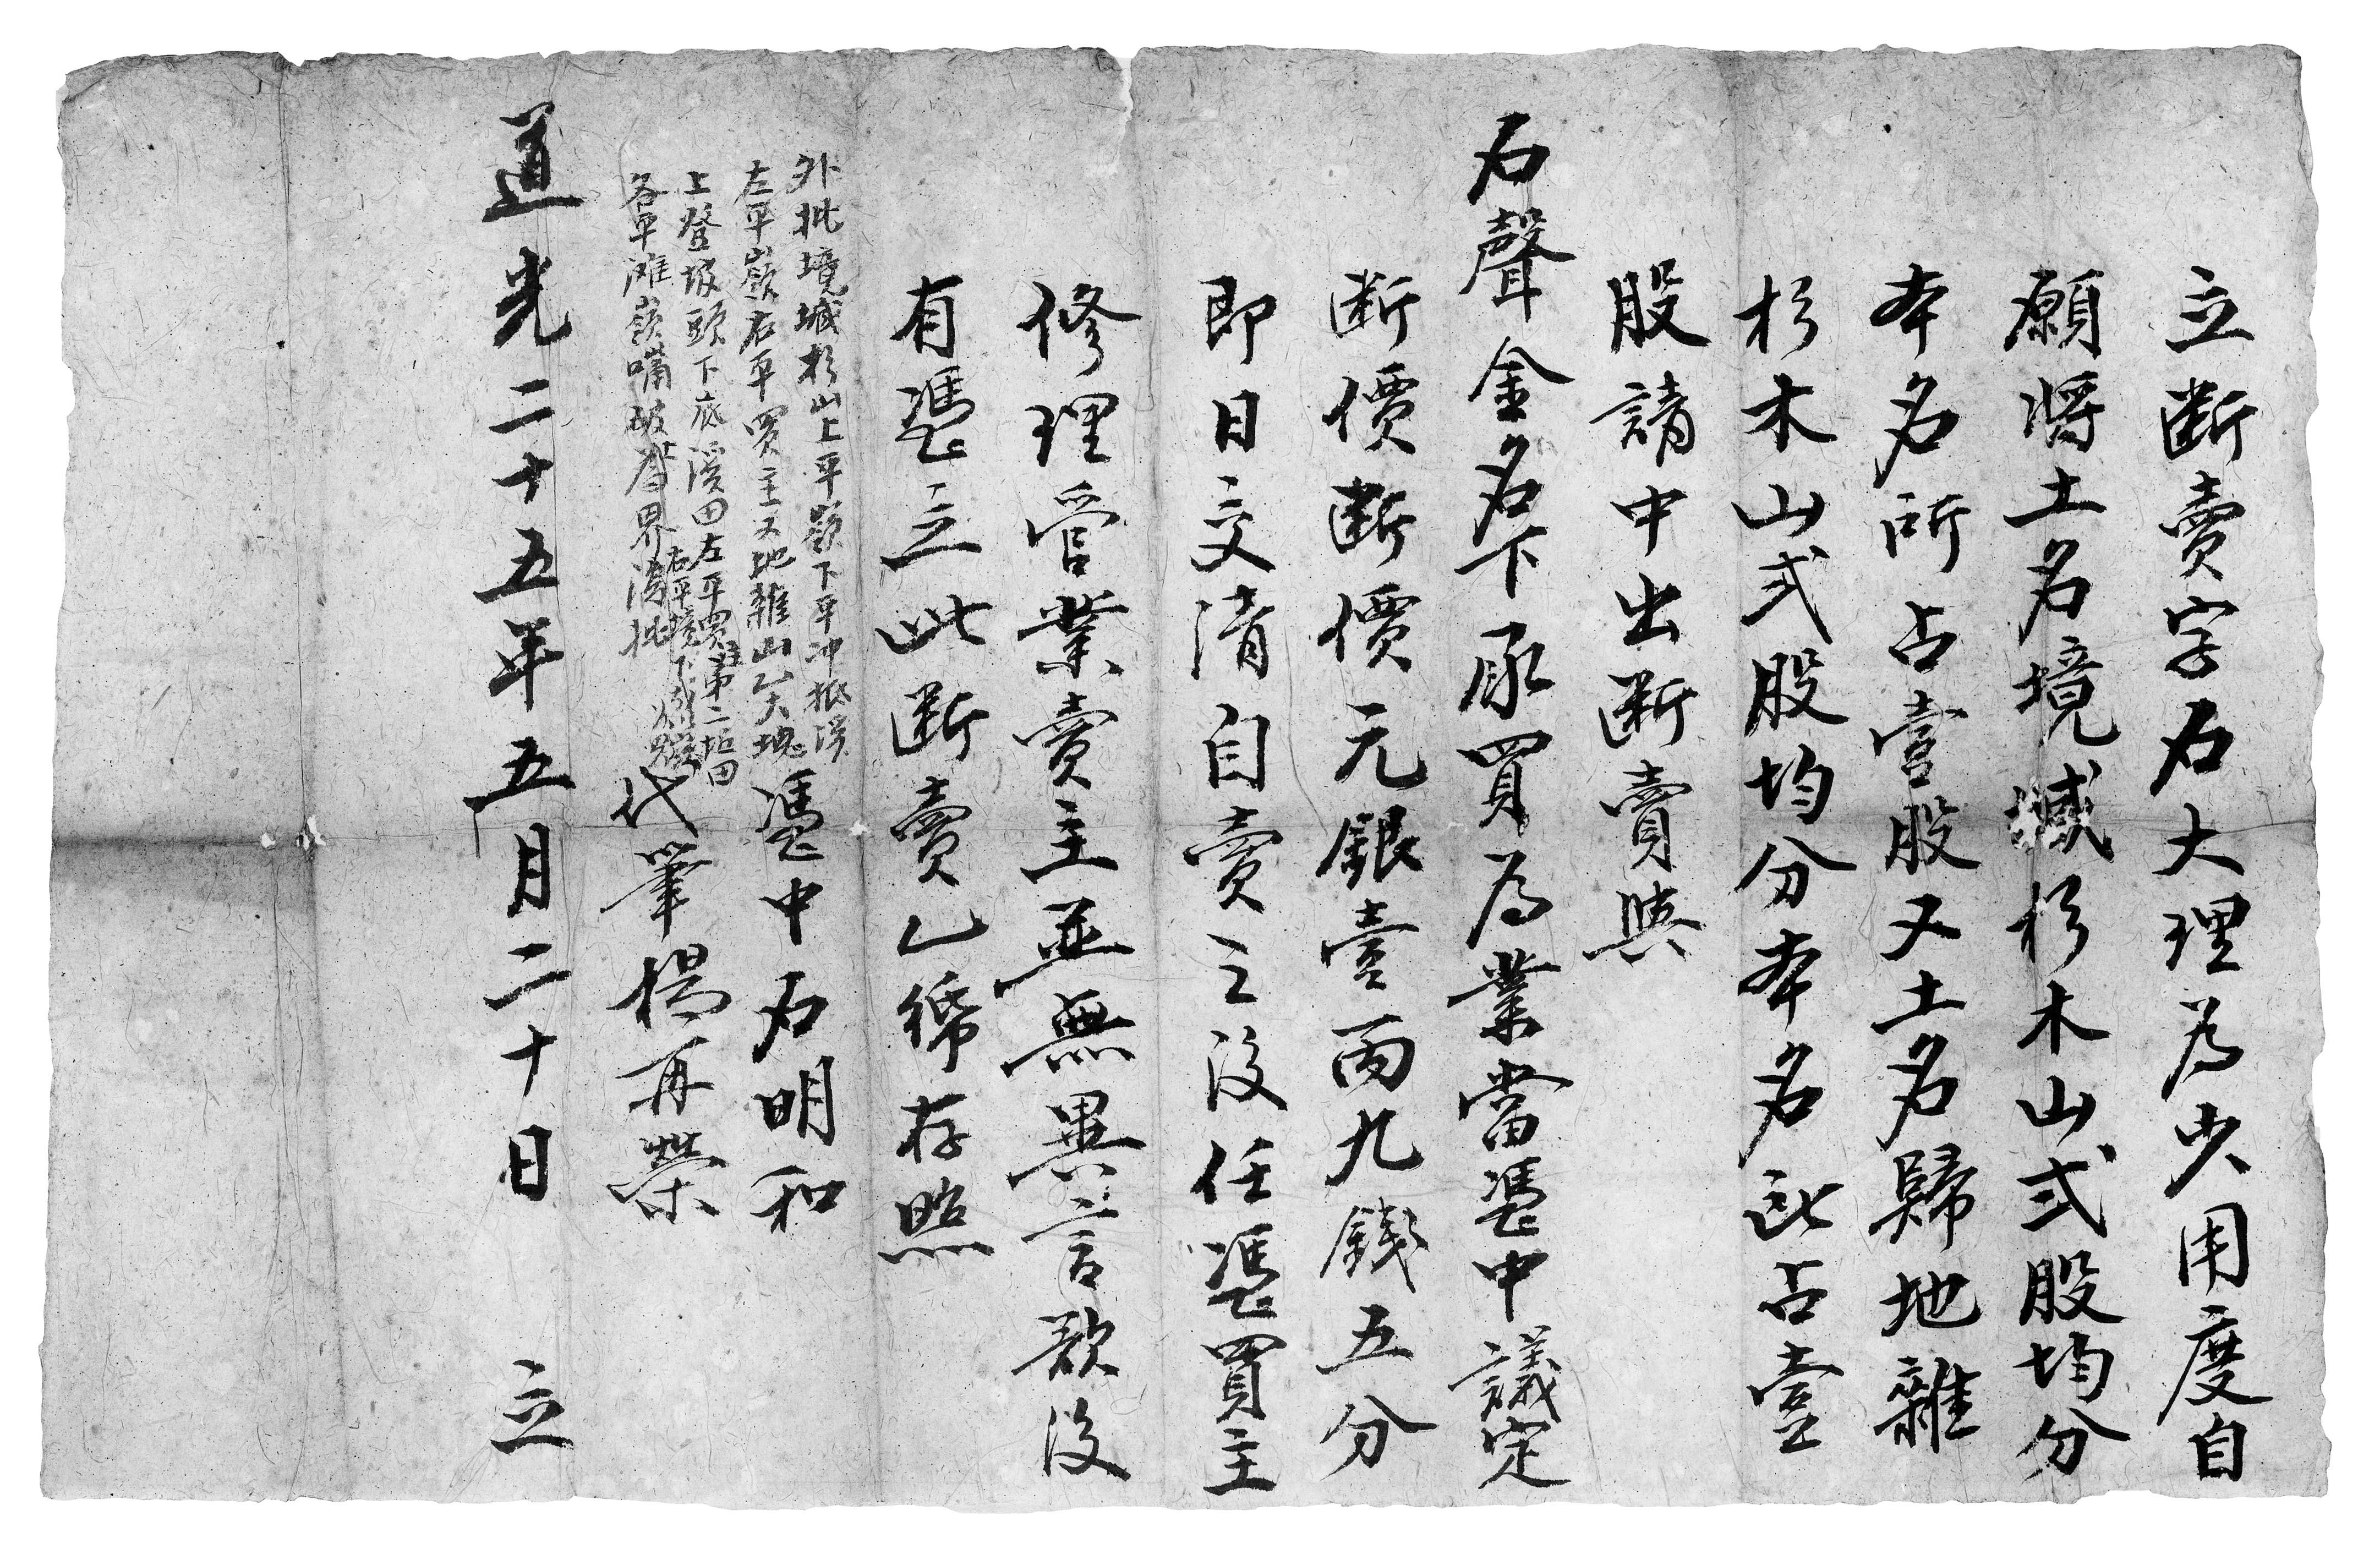 立断賣字石大理為少用度自
願將土名境堿杉木山弍股均分
本名所占壹股又土名歸地雜
杉木山弍股均分本名所占壹
股請中出断賣與
石聲金名下承買為業當憑中議定
断價断價元銀壹両九錢五分
即日交清自賣之後任憑買主
修理管業賣主並無異言欲後
有憑立此断賣乙紙存照
外批境堿杉山上平嶺下平冲抵溪
左平嶺右平買主又地雜山貳塊
上登坡頭下底溪田左平買主第二坵田
右平
各平滩嶺嘴破為界清批
憑中石明和
代筆楊再榮
道光二十五年五月二十日 立